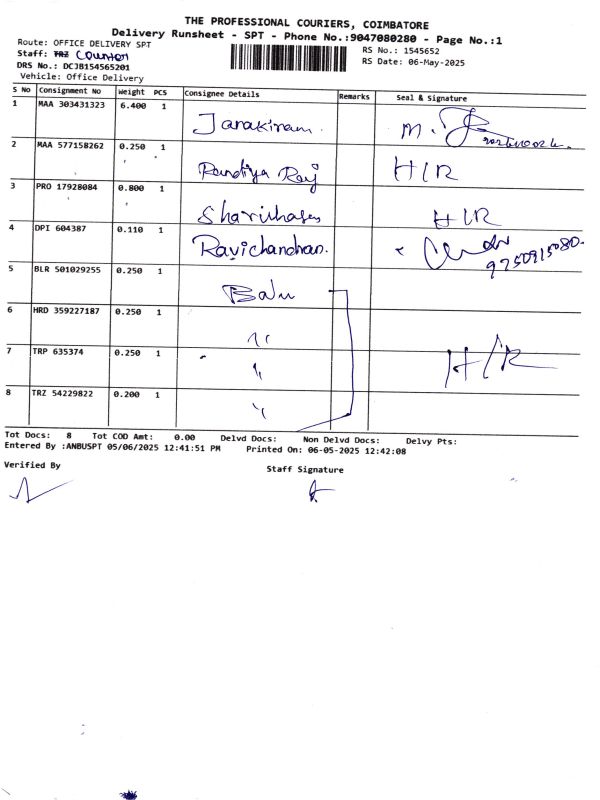 THE PROFESSIONAL COURIERS, COIMBATORE
Delivery Runsheet - SPT - Phone No.:9047080280 - Page No.:1
Route: OFFICE DELIVERY SPT
RS No.: 1545652
Staff: TRZ Counter
RS Date: 06-May-2025
DRS No.: DCJB154565201
Vehicle: Office Delivery
S No Consignment No Weight PCS Consignee Details Remarks Seal & Signature
1 MAA 303431323 6.400 1 Janakiram. M.
2 MAA 577158262 0.250 1 Pandiya Raj H/R
3 PRO 17928084 0.800 1 H/R
4 DPI 604387 0.110 1 Ravichandran. 9750915080.
5 BLR 501029255 0.250 1 Balu
6 HRD 359227187 0.250 1 "
7 TRP 635374 0.250 1 " H/R
8 TRZ 54229822 0.200 1 "
Tot Docs: 8 Tot COD Amt: 0.00 Delvd Docs: Non Delvd Docs: Delvy Pts:
Entered By :ANBUSPT 05/06/2025 12:41:51 PM Printed On: 06-05-2025 12:42:08
Verified By
Staff Signature